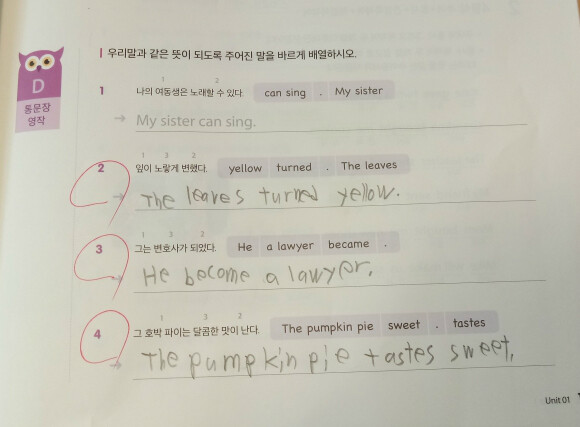 I 우리말과 같은 뜻이 되도록 주어진 말을 바르게 배열하시오.
D
통문장
영작
1 2
1 나의 여동생은 노래할 수 있다. can sing . My sister
→ My sister can sing.
1 3 2
2 잎이 노랗게 변했다. yellow turned . The leaves
→ The leaves turned yellow.
1 3 2
3 그는 변호사가 되었다. He a lawyer became .
→ He become a lawyer.
1 3 2
4 그 호박 파이는 달콤한 맛이 난다. The pumpkin pie sweet . tastes
→ The pumpkin pie tastes sweet.
Unit 01